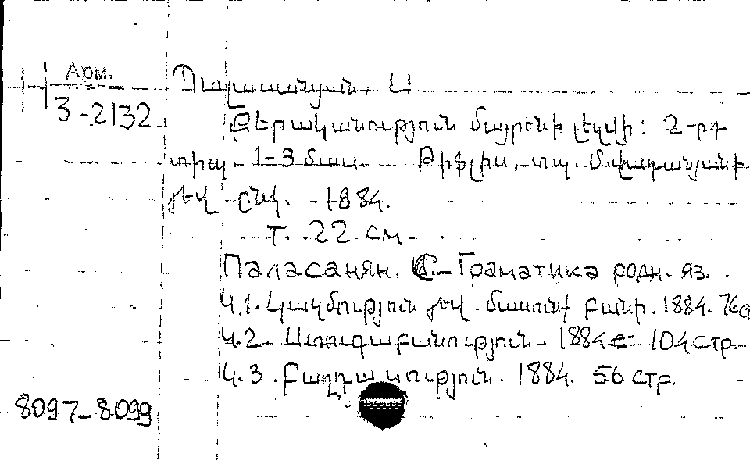 Арм.
3-2132
Պալասանյան, Ս
Քերականություն մայրենի լեզվի: 2-րդ
տիպ. 1-3 մաս. Թիֆլիս, տպ.
և ընկ. 1884.
т. 22 см.
Паласанян. С. Граматика родн. яз.
Ч.1. Կազմություն և մասունք բանի. 1884. 76с
Ч.2. Ստուգաբանություն - 1884 г 104 стр.
Ч.3. Բաղդասություն. 1884. 56 стр.
8097-8099